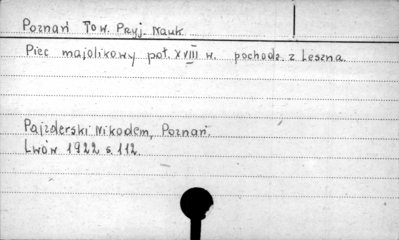 Poznań Tow. Pryj. Nauk
Piec majolikowy poł. XVIII w. pochodz. z Leszna.
Pajzderski Nikodem, Poznań.
Lwów 1922 s. 112.